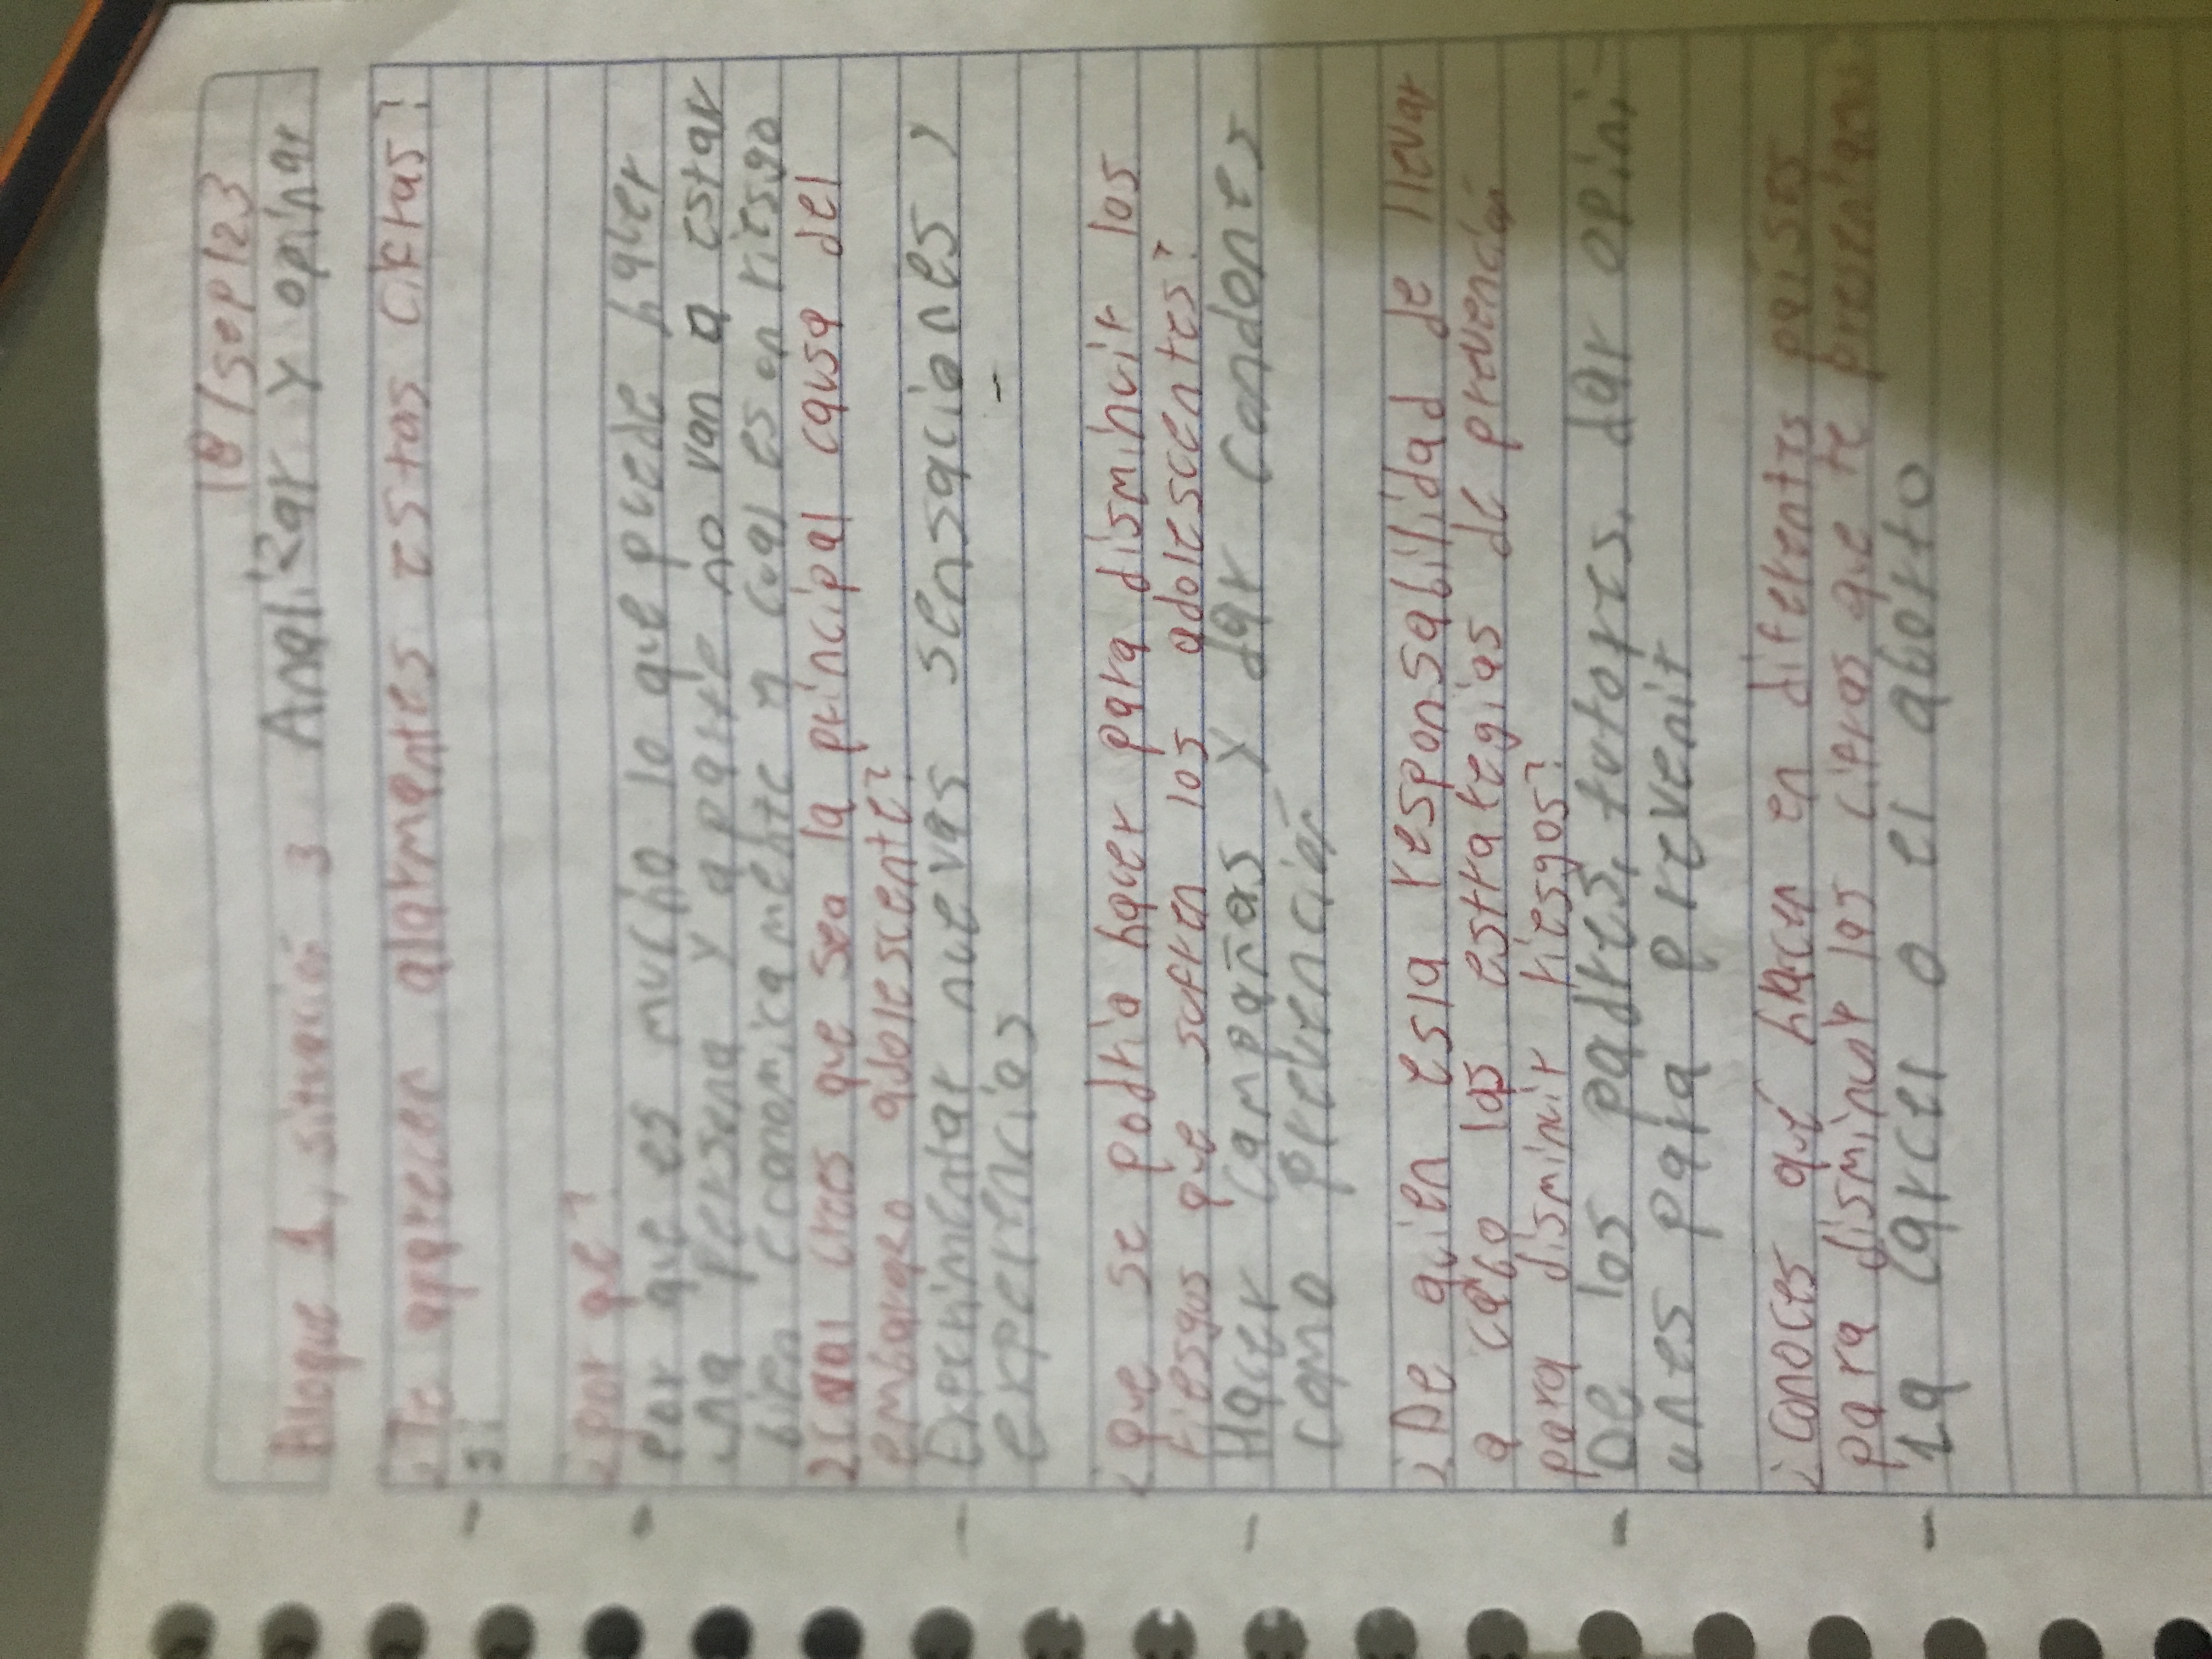 18/sep/23
Bloque 1, situación 3 Analizar y opinar
¿Te aparecen alarmantes estas cifras?
- si
¿por qe?
- por que es mucho lo que puede haber
una persona y aparte no van a estar
bien economicamente y cual es an riesgo
2 cual crees que sea la principal causa del
embarazo adolescente?
- Experimentar nuevas sensaciones y
experiencias
¿que se podria hacer para disminuir los
riesgos que sufren los adolescentes?
- Hacer campañas y dar condones
como prevención
¿De quien esla responsabilidad de llevar
a cabo las estrategias de prevención
para disminir riesgos?
- De los padres, tutores, dar opini-
ones para prevenir
¿conoces qué hacen en diferentes países
para disminuir las cifras que te presentan
- la carcel o el aborto